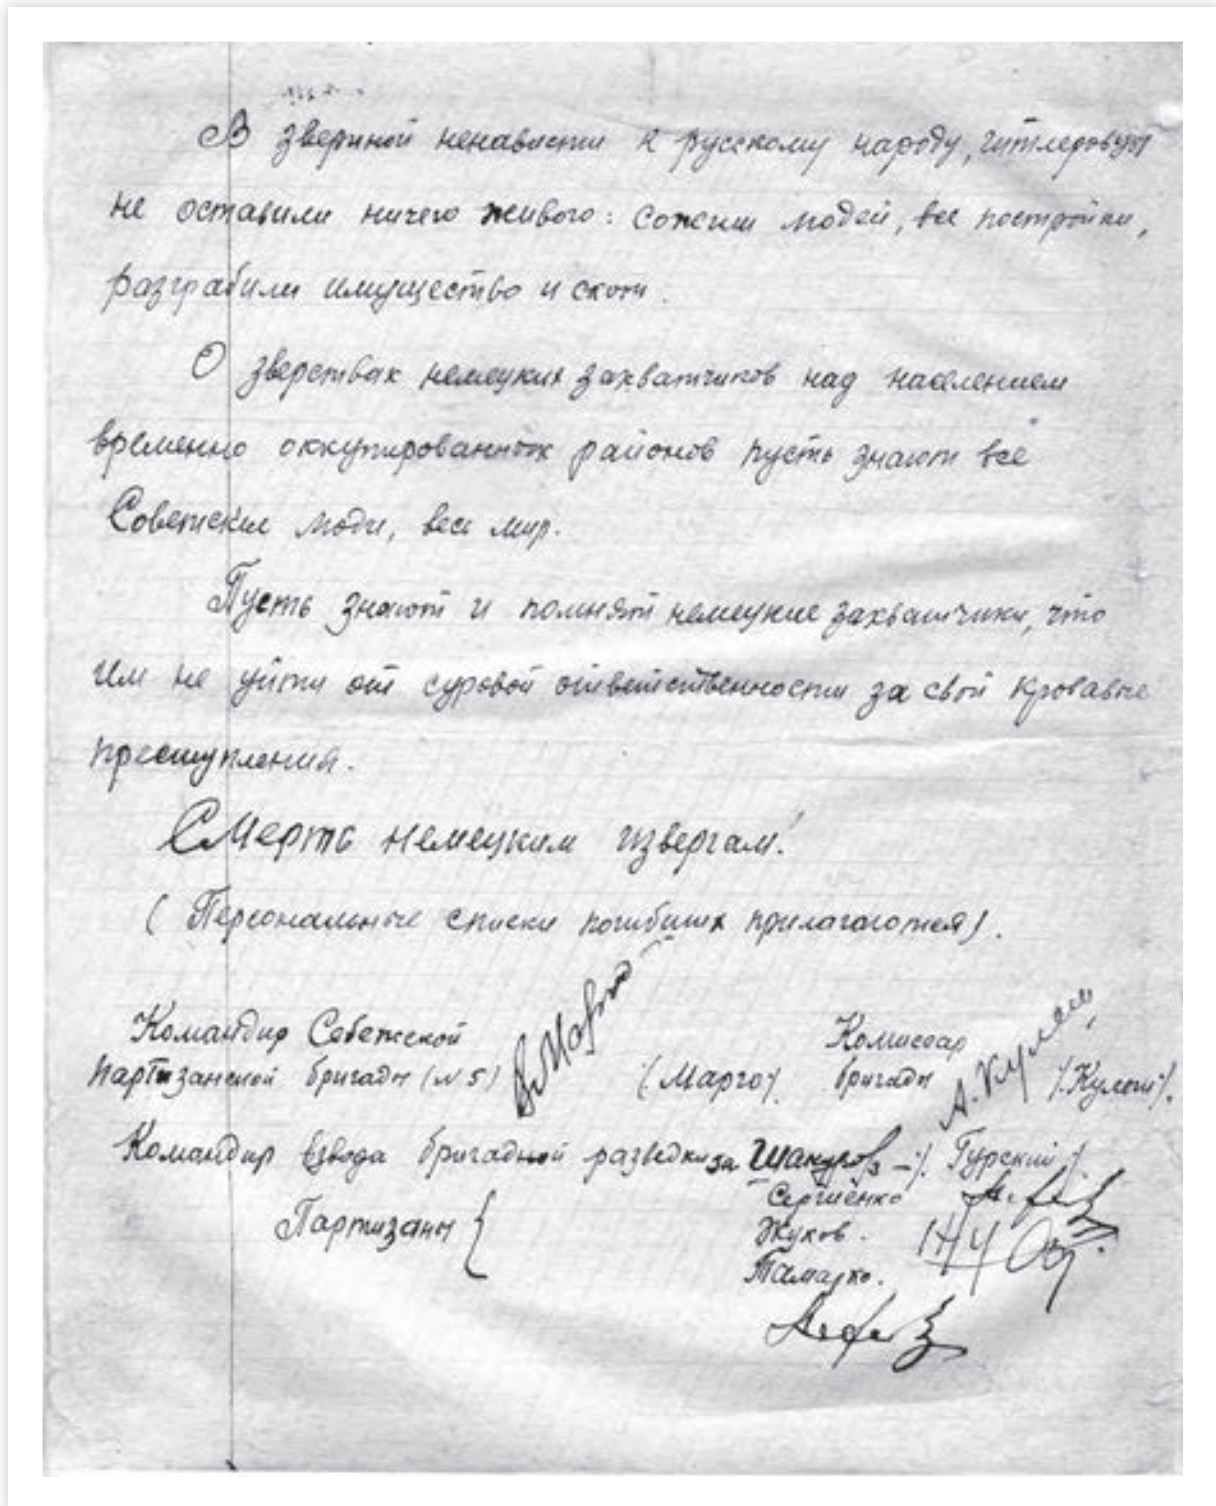 В звериной ненависти к русскому народу, гитлеровцы
не оставили ничего живого: сожгли людей, все постройки,
разграбили имущество и скот.
О зверствах немецких захватчиков над населением
временно оккупированных районов пусть знают все
Советские люди, весь мир.
Пусть знают и помнят немецкие захватчики, что
им не уйти от суровой ответственности за свои кровавые
преступления.
Смерть немецким извергам!
(Персональные списки погибших прилагаются).
Командир Себежской Комиссар
партизанской бригады (№5) (Марго). бригады А. Кулеш /.Кулеш/.
Командир взвода бригадной разведки за Шакуров -/. Гурский /.
Партизаны { Сергиенко
Жуков.